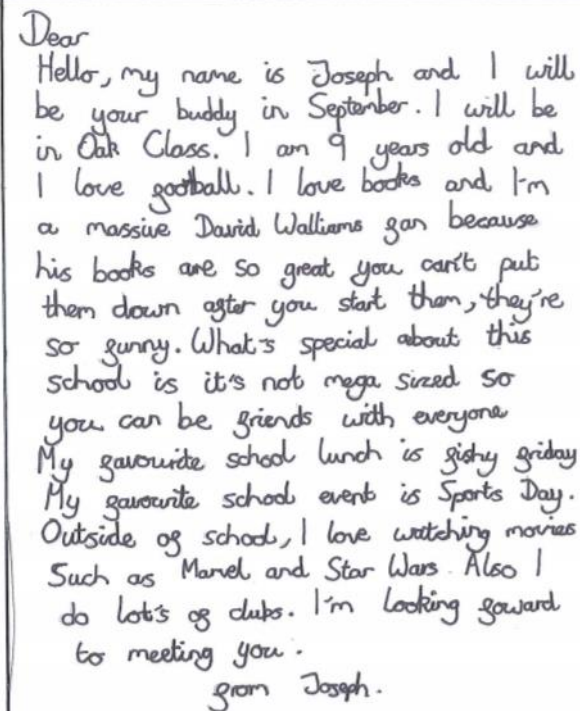 Dear
Hello, my name is Joseph and I will
be your buddy in September. I will be
in Oak Class. I am 9 years old and
I love football. I love books and I'm
a massive David Walliams fan because
his books are so great you can't put
them down after you start them, they're
so funny. What's special about this
school is it's not mega sized so
you can be friends with everyone
My favourite school lunch is fishy friday
My favourite school event is Sports Day.
Outside of school, I love watching movies
Such as Marvel and Star Wars. Also I
do lot's of clubs. I'm looking foward
to meeting you.
from Joseph.